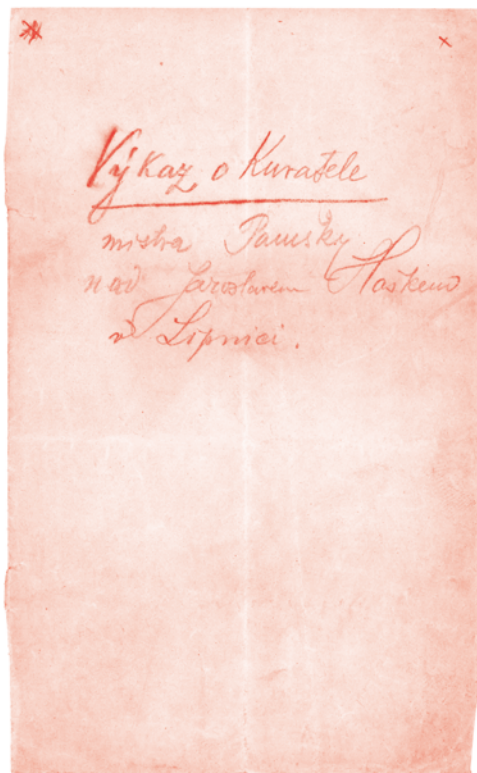 Výkaz o Kuratele
mistra Panušky
nad Jaroslavem Haškem
v Lipnici.